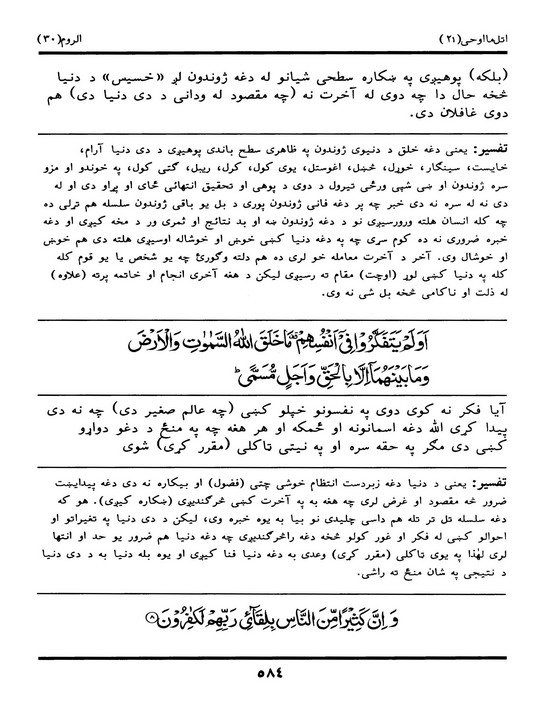 اتل مااوحی(۲۱) الروم(۳۰)
(بلکه) پوهیږی په ښکاره سطحی شیانو له دغه ژوندون لږ «خسیس» د دنیا
څخه حال دا چه دوی له آخرت نه (چه مقصود له ودانی د دی دنیا دی) هم
دوی غافلان دی.
تفسیر: یعنی دغه خلق د دنیوی ژوندون په ظاهری سطح باندی پوهیږی د دی دنیا آرام،
خایست، سینګار، خوړل، څښل، اغوستل، یوی کول، کرل، ریبل، ګټی کول، په خوندو او مزو
سره ژوندون او ښی شپی ورځی تیرول د دوی د پوهی او تحقیق انتهائی ځای او پړاو دی او له
دی نه له سره نه دی خبر چه پر دغه فانی ژوندون پوری د بل یو باقی ژوندون سلسله هم تړلی ده
چه کله انسان هلته ورورسیږی نو د دغه ژوندون ښه او بد نتائج او ثمری ور د مخه کیږی او دغه
خبره ضروری نه ده کوم سړی چه په دغه دنیا کښی خوښ او خوشاله اوسیږی هلته دی هم خوښ
او خوشال وی. آخر د آخرت معامله خو لری ده هم دلته وګورئ چه یو شخص یا یو قوم کله
کله په دنیا کښی لوړ (اوچت) مقام ته رسیږی لیکن د هغه آخری انجام او خاتمه پرته (علاوه)
له ذلت او ناکامی څخه بل شی نه وی.
اَوَلَمْ یَتَفَكَّرُوْا فِیْٓ اَنْفُسِهِمْ ۫ مَا خَلَقَ اللهُ السَّمٰوٰتِ وَالْاَرْضَ
وَمَا بَیْنَهُمَآ اِلَّا بِالْحَقِّ وَاَجَلٍ مُّسَمًّی ؕ
آیا فکر نه کوی دوی په نفسونو خپلو کښی (چه عالم صغیر دی) چه نه دی
پیدا کړی الله دغه اسمانونه او ځمکه او هر هغه چه په منځ د دغو دواړو
کښی دی مګر په حقه سره او په نیتی ټاکلی (مقرر کړی) شوی
تفسیر: یعنی د دنیا دغه زبردست انتظام خوشی چتی (فضول) او بیکاره نه دی دغه پیدایښت
ضرور څه مقصود او غرض لری چه هغه به په آخرت کښی څرګندیږی (ښکاره کیږی). هو که
دغه سلسله تل تر تله هم داسی چلیدی نو بیا به یوه خبره وی، لیکن د دی دنیا په تغیراتو او
احوالو کښی له فکر او غور کولو څخه دغه راڅرګندیږی چه دغه دنیا هم ضرور یو حد او انتها
لری لهٰذا په یوی ټاکلی (مقرر کړی) وعدی به دغه دنیا فنا کیږی او یوه بله دنیا به د دی دنیا
د نتیجی په شان منځ ته راشی.
وَ اِنَّ كَثِیْرًا مِّنَ النَّاسِ بِلِقَآئِ رَبِّهِمْ لَكٰفِرُوْنَ ۸
۵۸۴